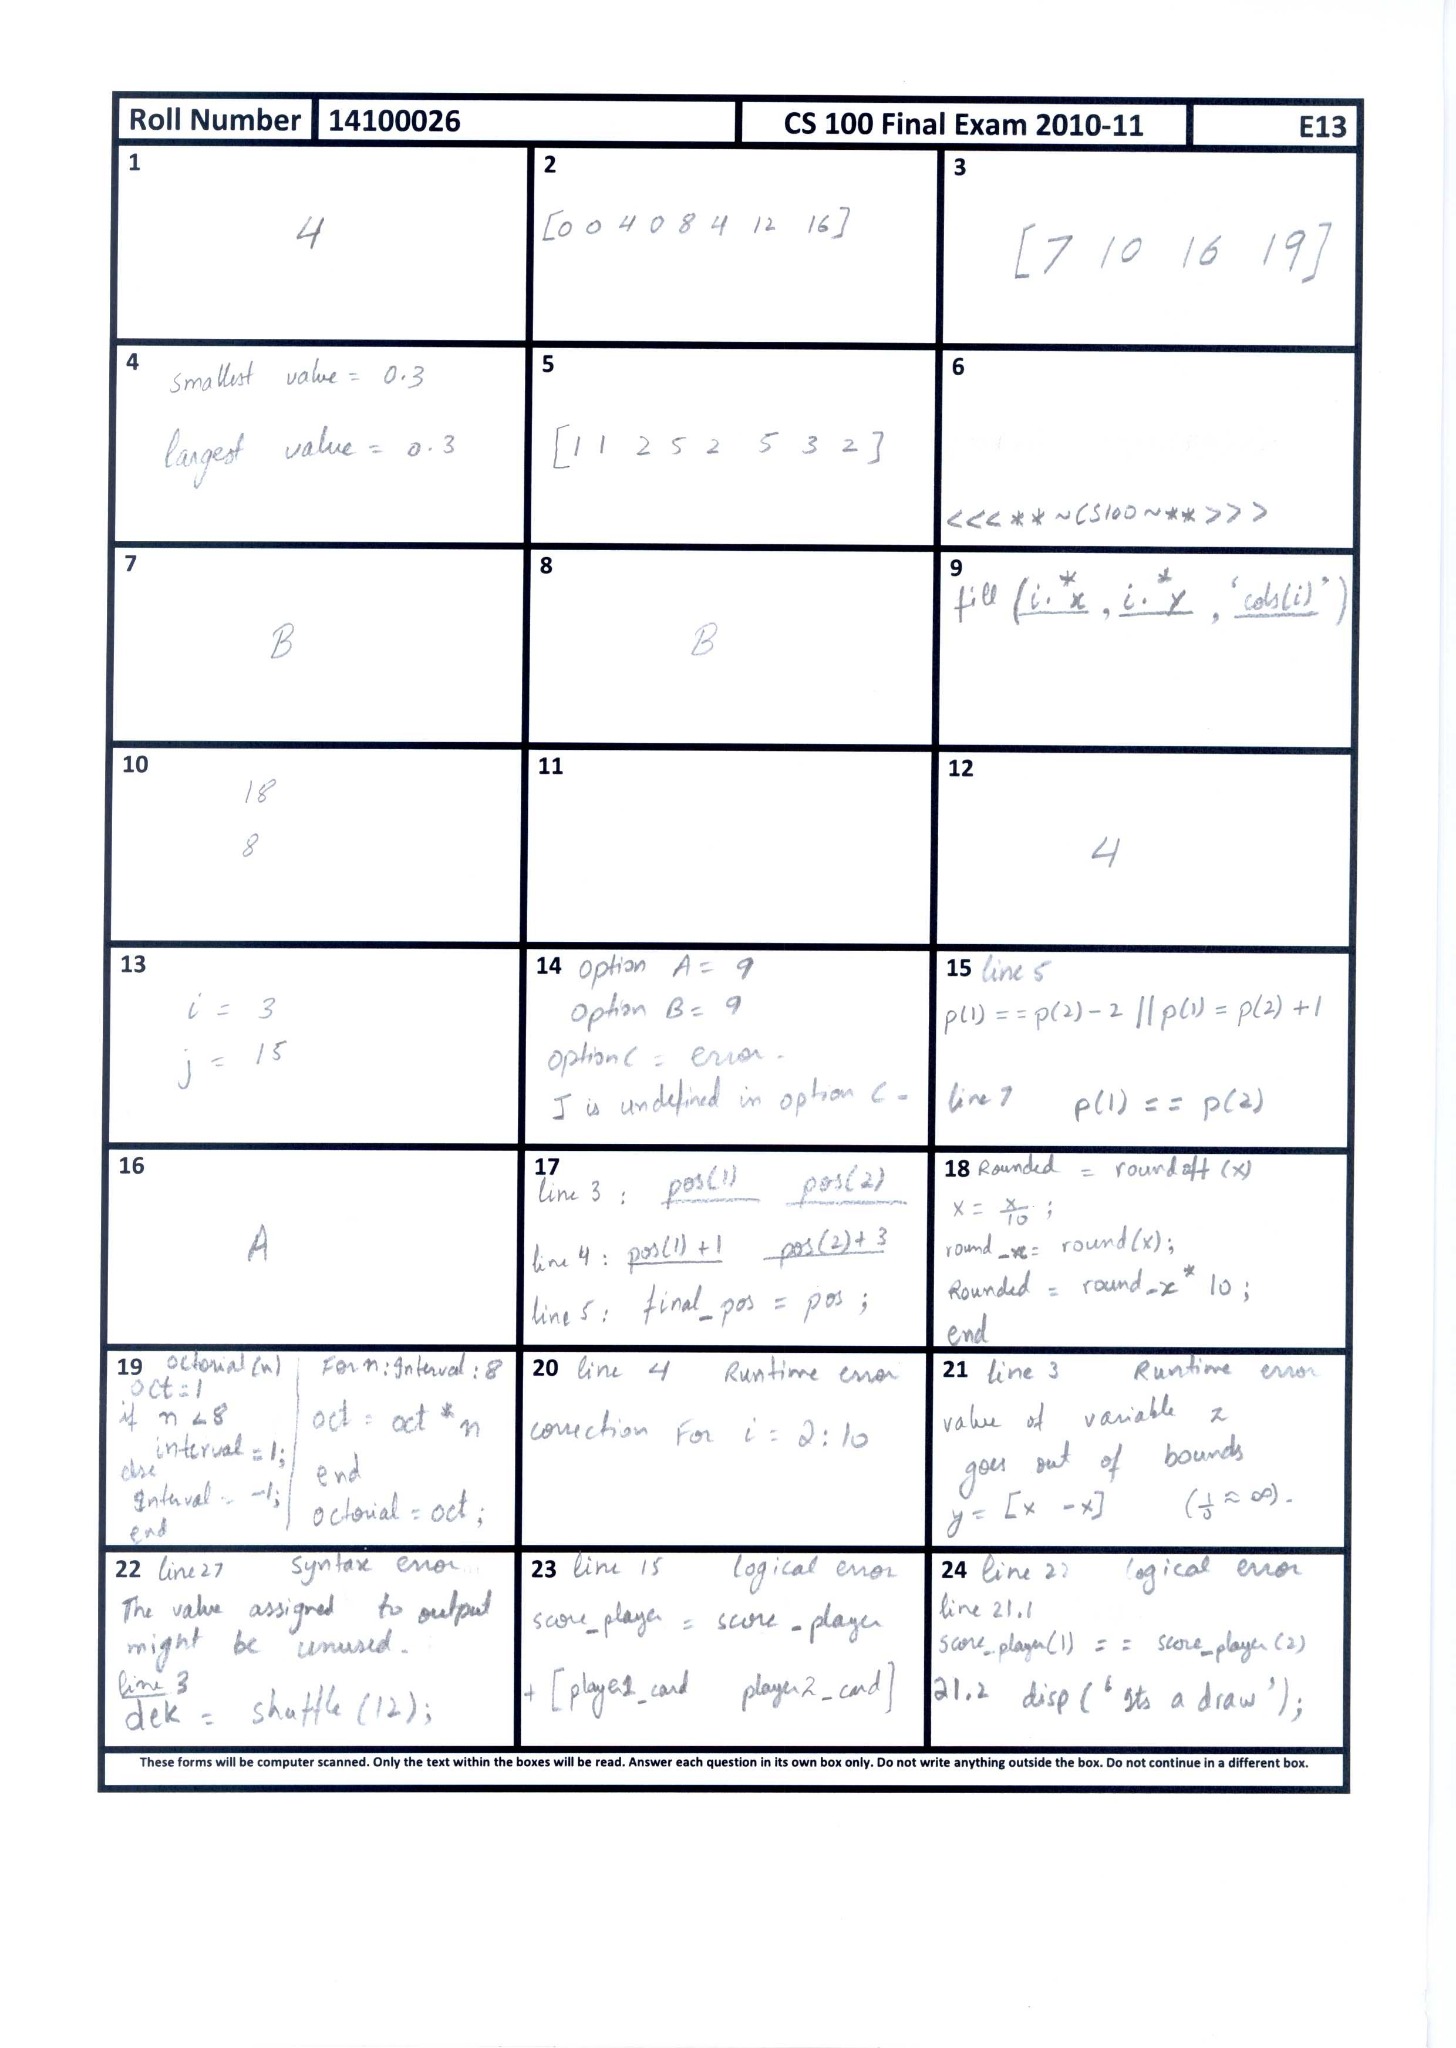 Roll Number 14100026 CS 100 Final Exam 2010-11 E13
1
4
2
[0 0 4 0 8 4 12 16]
3
[7 10 16 19]
4
smallest value = 0.3
largest value = 0.3
5
[1 1 2 5 2 5 3 2]
6
<<<**~CS100~**>>>
7
B
8
B
9
fill (i.*x, i.*y, 'cols(i)')
10
18
8
11
12
4
13
i = 3
j = 15
14 option A = 9
option B = 9
option C = error.
J is undefined in option C.
15 line 5
p(1) == p(2) - 2 || p(1) = p(2) + 1
line 7 p(1) == p(2)
16
A
17
line 3 : pos(1) pos(2)
line 4 : pos(1)+1 pos(2)+3
line 5 : final_pos = pos ;
18 Rounded = roundoff (x)
x = x/10 ;
round_x = round(x);
Rounded = round_x * 10 ;
end
19 octorial(n)
oct=1
if n<8
interval = 1;
else
Interval = -1;
end
For n : Interval : 8
oct = oct * n
end
octorial = oct ;
20 line 4 Runtime error
correction For i = 2:10
21 line 3 Runtime error
value of variable z
goes out of bounds
y = [x -x] (1/0 ≈ ∞).
22 line 27 Syntax error
The value assigned to output
might be unused.
line 3
dek = shuffle (12);
23 line 15 logical error
score_player = score_player
+ [player1_card player2_card]
24 line logical error
line 21.1
score_player(1) == score_player(2)
21.2 disp ('Its a draw');
These forms will be computer scanned. Only the text within the boxes will be read. Answer each question in its own box only. Do not write anything outside the box. Do not continue in a different box.